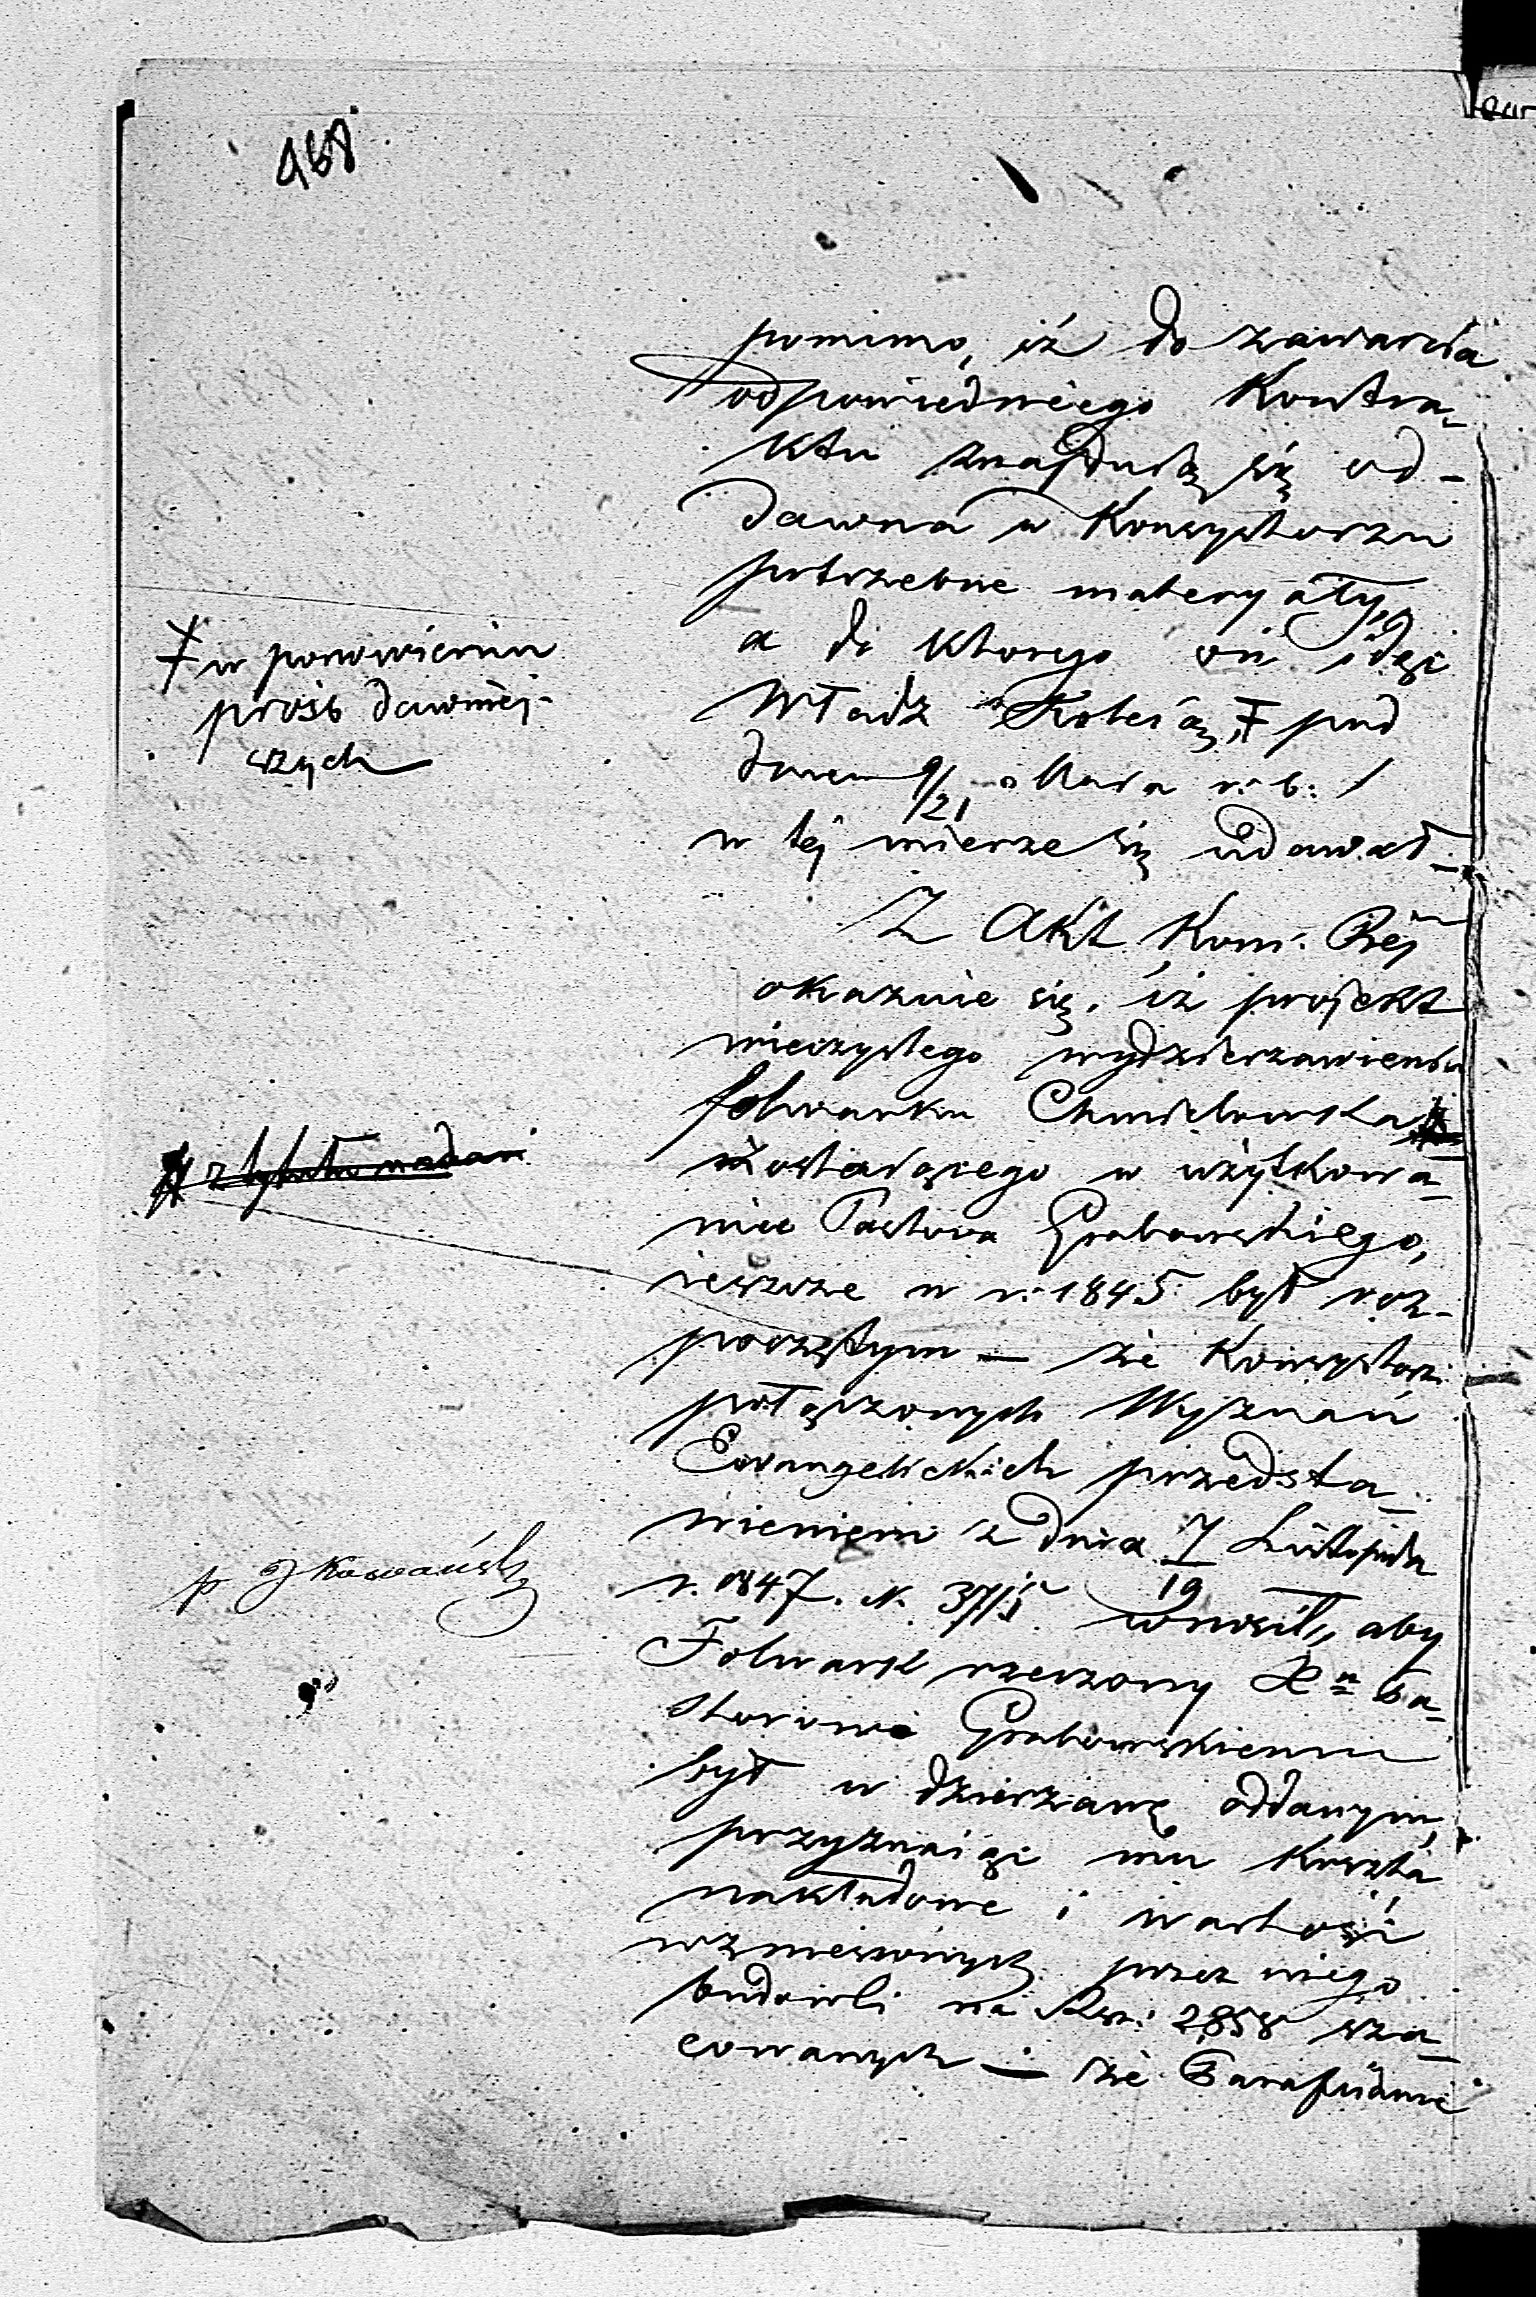 468
pomimo, iż do zawarcia
odpowiedniego Kontra-
ktu znajdują się od-
dawna w Konsystorzu
potrzebne materyały,
a do ktorego on idąc
Władz Koleią, ҂ pod
dniem 9/21 Maia r: b: /
w tej mierze się udawał_
Z Akt Kom: Rej
okazuie się, iż projekt
wieczystego wydzierzawienia
folwarku Chmielowska
zostaiącego w użytkowa-
niu Pastora Grabowskiego,
ieszcze w r: 1845 był roz-
poczętym — że Konsystorz
połączonych Wyznań
Ewangelickich przedsta-
wieniem z dnia 7/19 Listopada
r. 1847. N. wnosił, aby
Folwark rzeczony Xn Pa-
storowi Grabowskiemu
był w dzierzawę oddanym,
przyznaiąc mu koszta
nakładowe i wartość
wzniesionych przez niego
budowli na Rsr: 2858 sza-
cowanych — że Parafianie
҂ w ponowieniu
prośb dawniej-
szych